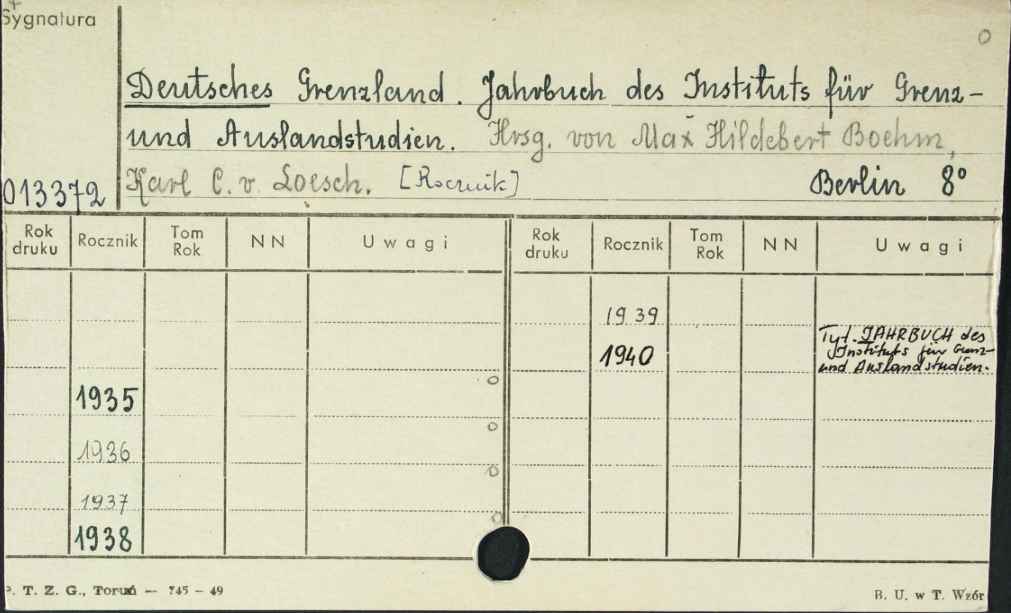 Sygnatura
Deutsches Grenzland. Jahrbuch des Instituts für Grenz-
und Auslandstudien. Hrsg. von Max Hildebert Boehm,
013372 Karl C. v. Loesch. [Rocznik] Berlin 8°
Rok druku Rocznik Tom Rok NN Uwagi Rok druku Rocznik Tom Rok NN Uwagi
1939
1940 Tyt. JAHRBUCH des
Instituts für Grenz-
und Auslandstudien.
1935
1936
1937
1938
P. T. Z. G., Toruń — 745 – 49 B. U. w T. Wzór